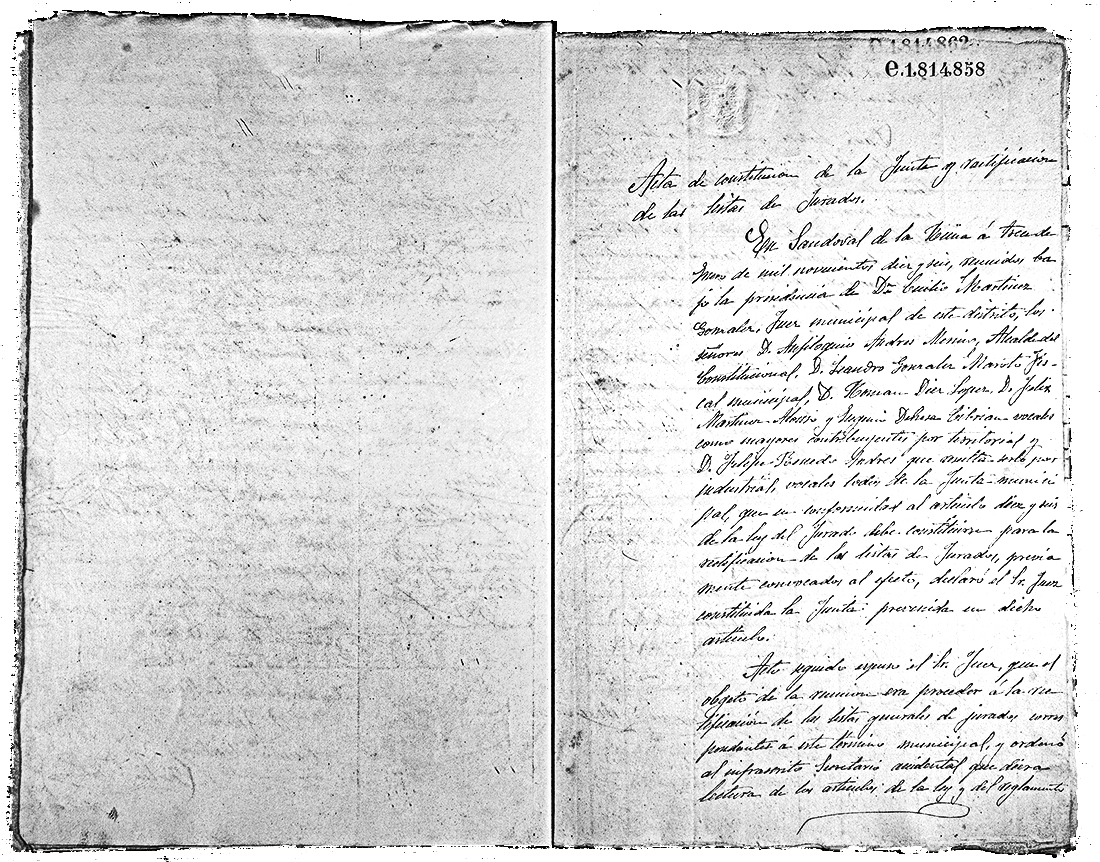 0.1814.862
e.1.814.858
Acta de constitucion de la Junta y rectificacion
de las listas de Jurados.
En Sandoval de la Reina á trece de
Enero de mil novecientos diez y seis, reunidos ba
jo la presidencia de Dn Martinez
Gonzalez, Juez municipal de este distrito, los
señores D. Anfiloquio Andres Merino, Alcalde del
Constitucional, D. Leandro Gonzalez Fis-
cal municipal, D. Roman Diez Lopez, D. Felix
Martinez Alonso y Eugenio Dehesa Cibrian vocales
como mayores contribuyentes por territorial y
D. Felipe Renedo Andres que resulta serlo por
industrial, vocales todos de la Junta munici
pal, que en conformidad al artículo diez y seis
de la ley del Jurado debe constituirse para la
rectificacion de las listas de Jurados, previa
mente convocados al efecto, declaró el Sr. Juez
constituida la Junta prevenida en dicho
artículo.
Acto seguido expuso el Sr. Juez, que el
objeto de la reunion era proceder á la rec
tificación de las listas generales de jurados corres
pondientes á este término municipal, y ordenó
al infrascrito Secretario accidental que diera
lectura de los artículos de la ley y del reglamento